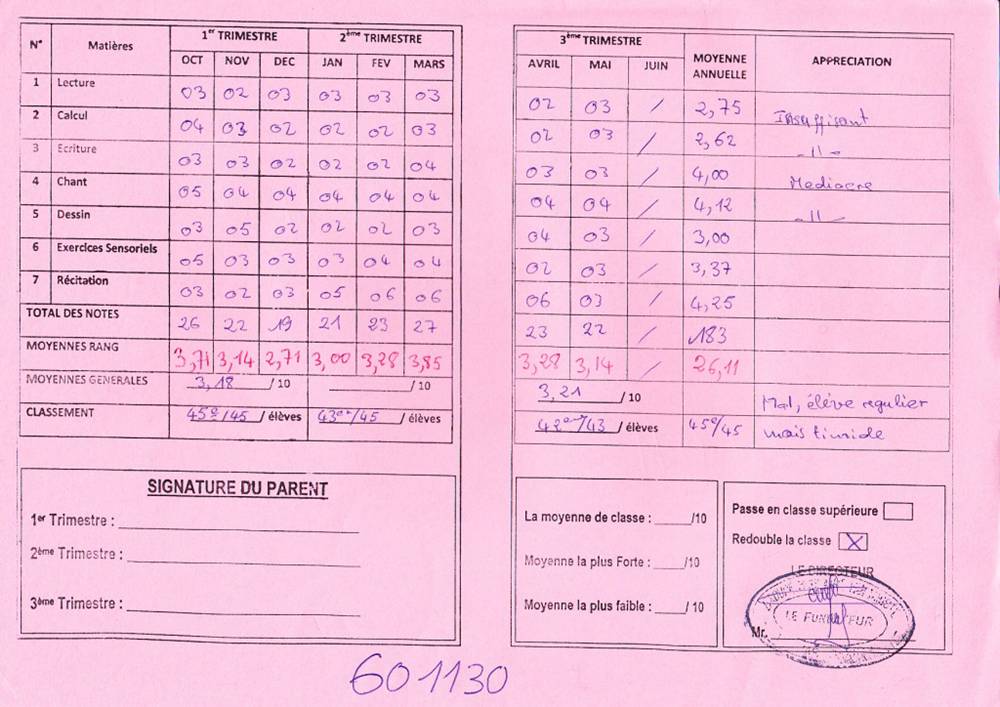 N° Matières 1er TRIMESTRE 2ème TRIMESTRE
OCT NOV DEC JAN FEV MARS
1 Lecture 03 02 03 03 03 03
2 Calcul 04 03 02 02 02 03
3 Ecriture 03 03 02 02 02 04
4 Chant 05 04 04 04 04 04
5 Dessin 03 05 02 02 02 03
6 Exercices Sensoriels 05 03 03 03 04 04
7 Récitation 03 02 03 05 06 06
TOTAL DES NOTES 26 22 19 21 23 27
MOYENNES RANG 3,71 3,14 2,71 3,00 3,28 3,85
MOYENNES GENERALES 3,18 /10 /10
CLASSEMENT 45e/45 / élèves 43e/45 / élèves
SIGNATURE DU PARENT
1er Trimestre :
2ème Trimestre :
3ème Trimestre :
3ème TRIMESTRE MOYENNE ANNUELLE APPRECIATION
AVRIL MAI JUIN
02 03 / 2,75 Insuffisant
02 03 / 2,62 -11-
03 03 / 4,00 Mediocre
04 04 / 4,12 -11-
04 03 / 3,00
02 03 / 3,37
06 03 / 4,25
23 22 / 183
3,28 3,14 / 26,11
3,21 /10 Mal, élève regulier
42e/43 / élèves 45e/45 mais timide
La moyenne de classe : /10
Moyenne la plus Forte : /10
Moyenne la plus faible : / 10
Passe en classe supérieure
Redouble la classe X
LE DIRECTEUR
LE FONDATEUR
Mr.
601130